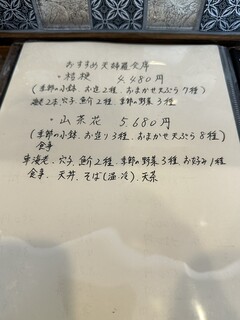 おすすめ天婦羅会席
・桔梗 4.480円
(季節の小鉢、お造2種、おまかせ天ぷら7種)
海老2本、穴子、魚介2種、季節の野菜3種
・山茶花 5.680円
(季節の小鉢、お造り3種、おまかせ天ぷら8種)
食事
車海老、穴子、魚介2種、季節の野菜3種、お好み1種
食事、天丼、そば(温、冷)、天茶